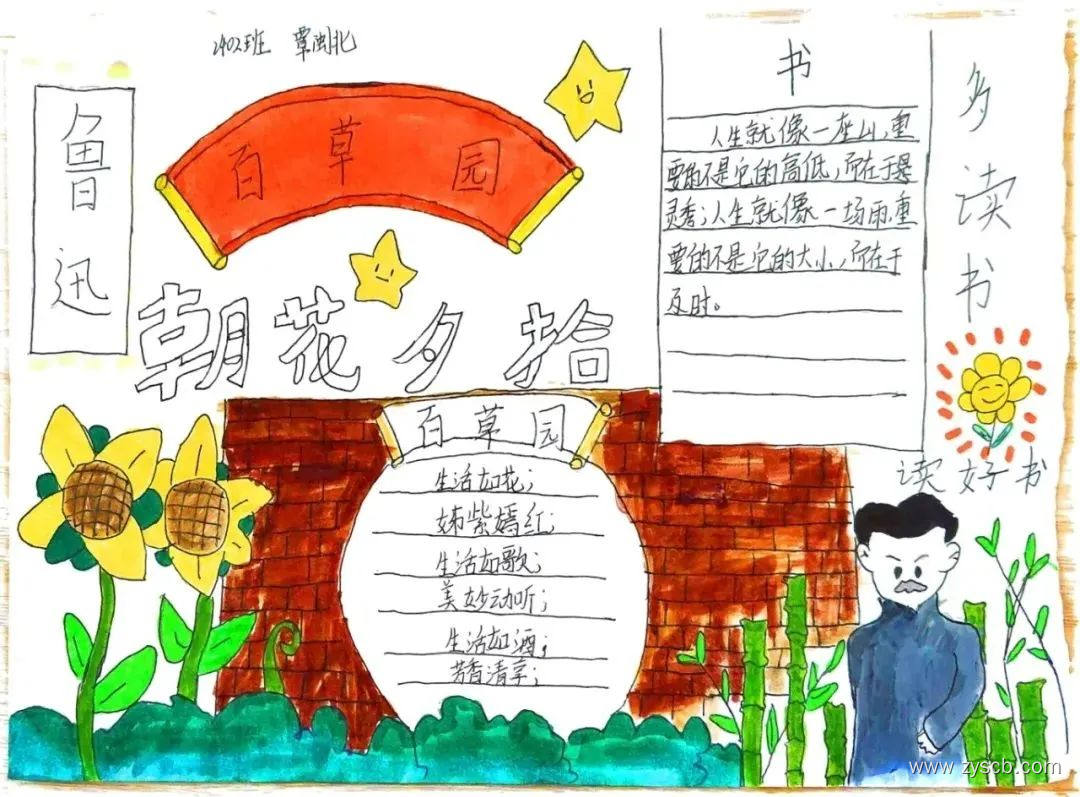 2402班 覃闽北
鲁迅
百草园
朝花夕拾
书
人生就像一座山,重
要的不是它的高低,而在于是
灵秀;人生就像一场雨,重
要的不是它的大小,而在于
及时。
多读书
读好书
百草园
生活如花;
姊紫嫣红;
生活如歌;
美妙动听;
生活如酒;
芳香清享;
www.zyscb.com